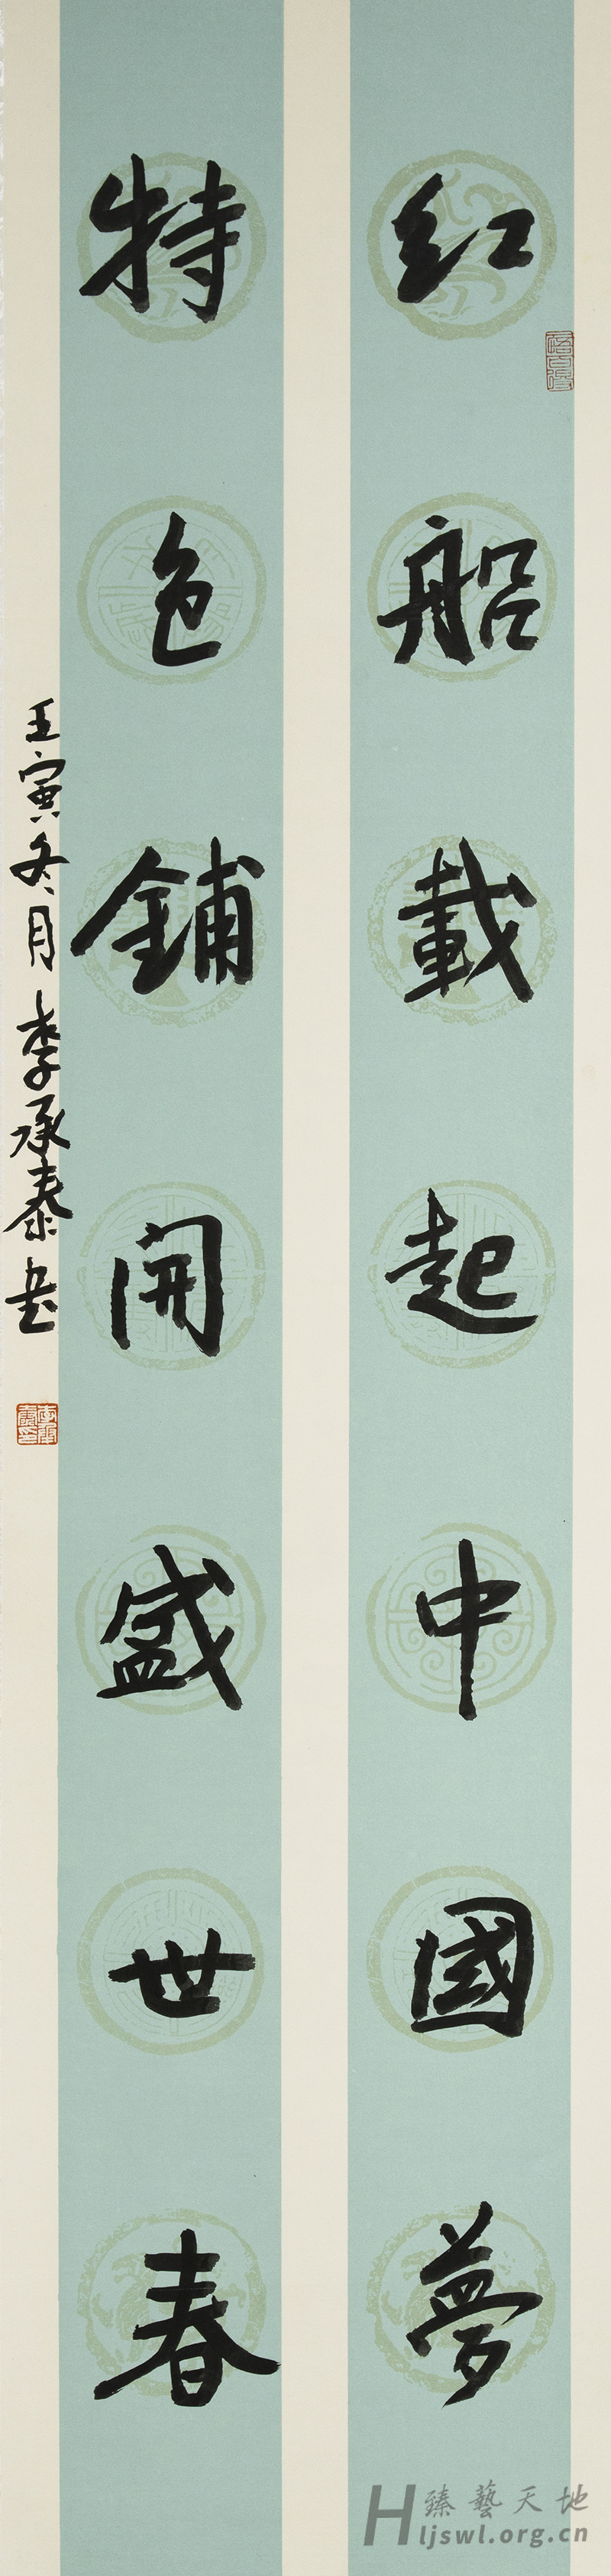 红船載起中國夢
特色鋪開盛世春
壬寅冬月李承泰书
臻藝天地
Hljswl.org.cn